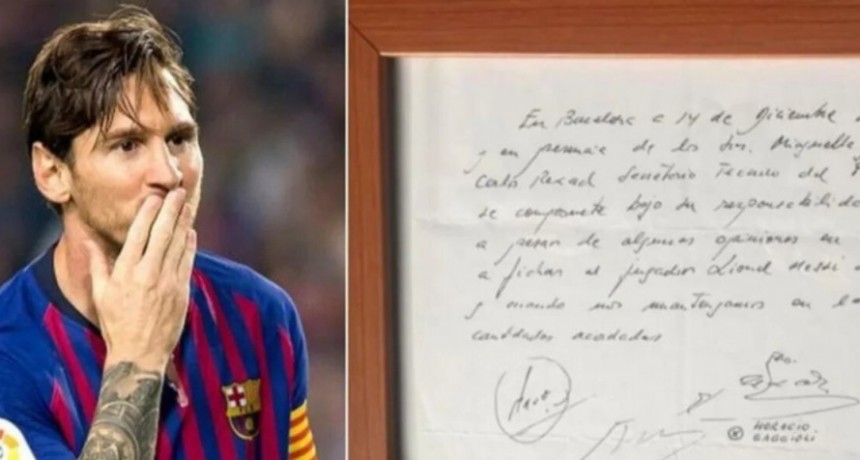 En Barcelona a 14 de Diciembre
y en presencia de los Srs. Minguella
Carlos Rexach Secretario Tecnico del F
se compromete bajo su responsabilida
a pesar de algunas opiniones en
a fichar al jugador Lionel Messi
y cuando nos mantengamos en la
cantidades acordadas
HORACIO
GAGGIOLI